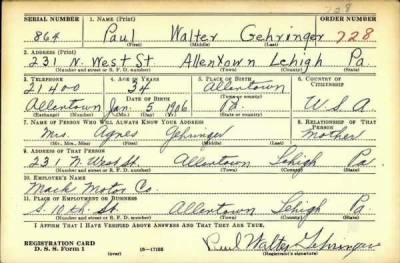 728
SERIAL NUMBER 1. NAME (Print) ORDER NUMBER
864 Paul Walter Gehringer 728
(First) (Middle) (Last)
2. ADDRESS (Print)
231 N. West St. Allentown Lehigh Pa.
(Number and street or R. F. D. number) (Town) (County) (State)
3. TELEPHONE 4. AGE IN YEARS 5. PLACE OF BIRTH 6. COUNTRY OF CITIZENSHIP
21400 34 Allentown
DATE OF BIRTH (Town or county)
Allentown Jan. 5 1906 Pa. U.S.A
(Exchange) (Number) (Mo.) (Day) (Yr.) (State or country)
7. NAME OF PERSON WHO WILL ALWAYS KNOW YOUR ADDRESS 8. RELATIONSHIP OF THAT PERSON
Mrs. Agnes Gehringer Mother
(Mr., Mrs., Miss) (First) (Middle) (Last)
9. ADDRESS OF THAT PERSON
231 N. West St. Allentown Lehigh Pa.
(Number and street or R. F. D. number) (Town) (County) (State)
10. EMPLOYER'S NAME
Mack Motor Co.
11. PLACE OF EMPLOYMENT OR BUSINESS
S. 10th St. Allentown Lehigh Pa.
(Number and street or R. F. D. number) (Town) (County) (State)
I AFFIRM THAT I HAVE VERIFIED ABOVE ANSWERS AND THAT THEY ARE TRUE.
REGISTRATION CARD
D. S. S. Form 1 (over) Paul Walter Gehringer
(Registrant's signature)